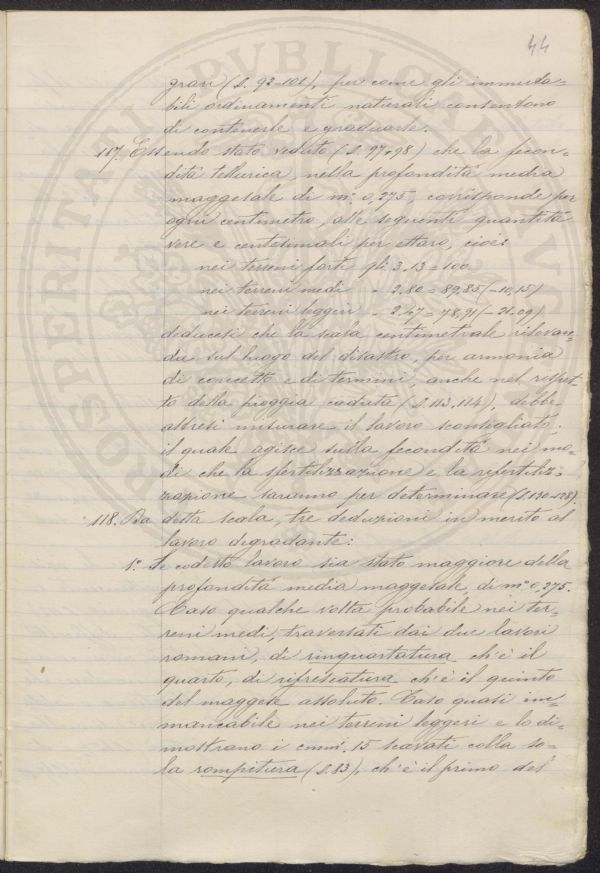 44
gravi (§. 92-101), per come gli immuta-
bili ordinamenti naturali consentono
di contenerle e graduarle.
117. Essendo stato veduto (§. 97+98) che la fecon-
dità tellurica, nella profondità media
maggesale di m.º 0,275, corrisponde per
ogni centimetro, alle seguenti quantità
vere e centesimali per ettaro, cioè:
nei terreni forti gli 3.13 = 100
nei terreni medi " 2.80 = 89,85 (- 10,15)
nei terreni leggeri " 2.47 = 78,91 (- 21.09)
deducesi che la scala centimetrale rilevan-
da sul luogo del disastro, per armonia
di concetto e di termini, anche nel rispet-
to della pioggia caduta (§. 113, 114), debbe
altresì misurare il lavoro sconsigliato.
il quale agisce sulla fecondità nei mo-
di che la sfertilizzazione e la rifertiliz-
zazione saranno per determinare (§. 120-128)
118. Da detta scala, tre deduzioni in merito al
lavoro degradante:
1º. Se codesto lavoro sia stato maggiore della
profondità media maggesale, di m.º 0,275.
Caso qualche volta probabile nei ter-
reni medi, traversati dai due lavori
romani, di rinquartatura ch'è il
quarto, di rifrescatura ch'è il quinto
del maggese assoluto. Caso quasi im-
mancabile nei terreni leggeri e lo di-
mostrano i cmm. 15 scavati colla so-
la rompitura (§. 83), ch'è il primo del
PROSPERITATI PVBLICAE